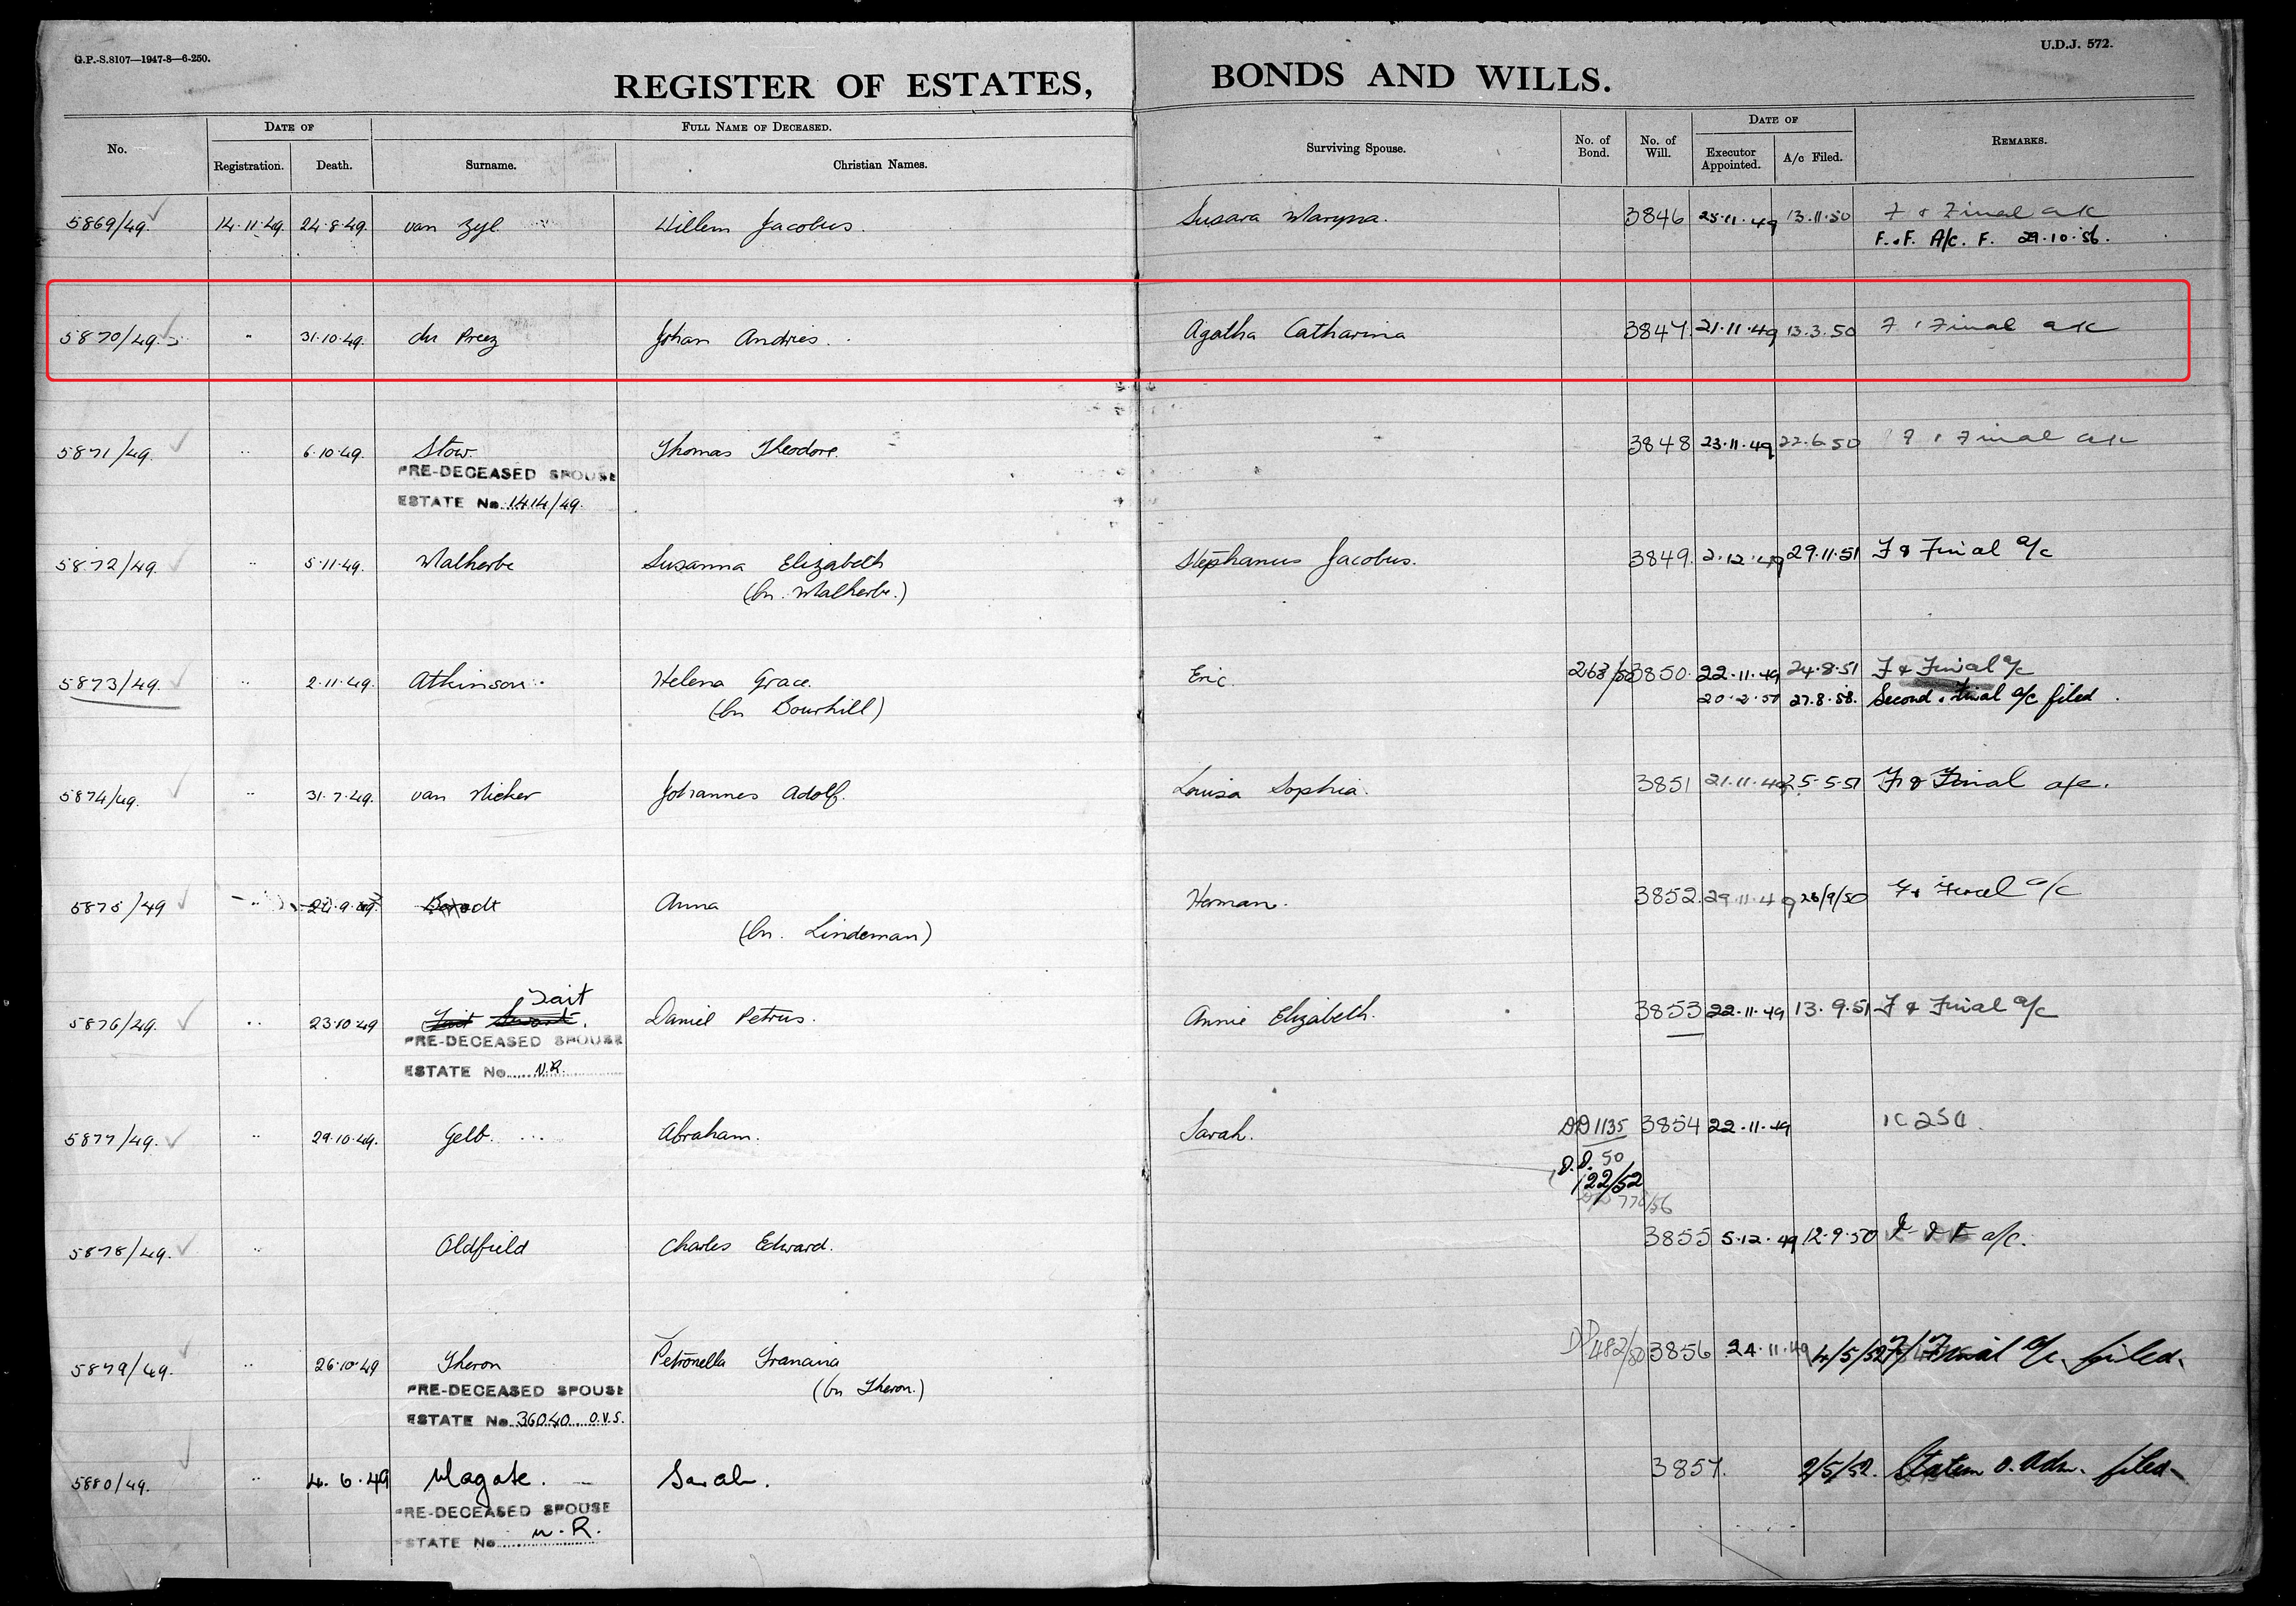 G.P.-S.8107—1947-8—6-250.
U.D.J. 572.
REGISTER OF ESTATES, BONDS AND WILLS.
No.
DATE OF
Registration. Death.
FULL NAME OF DECEASED.
Surname. Christian Names.
Surviving Spouse.
No. of Bond.
No. of Will.
DATE OF
Executor Appointed. A/c Filed.
REMARKS.
5869/49. 14.11.49. 24.8.49. van Zyl Willem Jacobus. Susara Maryna. 3846 25.11.49 13.11.50 F & Final a/c
F. & F. A/c. F. 29.10.56.
5870/49. " 31.10.49. du Preez Johan Andries. Agatha Catharina 3847. 21.11.49 13.3.50 F & Final a/c
5871/49. " 6.10.49. Stow Thomas Theodore. 3848 23.11.49 22.6.50 F & Final a/c
PRE-DECEASED SPOUSE
ESTATE No. 1414/49.
5872/49. " 5.11.49. Malherbe Susanna Elizabeth Stephanus Jacobus. 3849. 2.12.49 29.11.51 F & Final a/c
(bn. Malherbe.)
5873/49. " 2.11.49. Atkinson. Helena Grace. Eric. 263/50 3850. 22.11.49 24.8.51 F & Final a/c
(bn Bourhill) 27.8.58. Second & Final a/c filed.
5874/49. " 31.7.49. van Niekerk Johannes Adolf. Louisa Sophia. 3851 21.11.49 25.5.51 F & Final a/c.
5875/49 " Anna Herman. 3852. 29.11.49 26/9/50 F & Final a/c
(bn. Lindeman)
Tait
5876/49. " 23.10.49 Daniel Petrus. Annie Elizabeth. 3853 22.11.49 13.9.51 F & Final a/c
PRE-DECEASED SPOUSE
ESTATE No. N.R.
5877/49. " 29.10.49. Gelb. Abraham. Sarah. DD 1135 3854 22.11.49
D.D. 50
122/52
5878/49. " Oldfield Charles Edward. 3855 5.12.49 12.9.50 F & F a/c.
5879/49. " 26.10.49 Theron Petronella Francina 3856 24.11.49 4/5/52 F/Final a/c. filed.
(bn Theron.)
PRE-DECEASED SPOUSE
ESTATE No. 36040 O.V.S.
5880/49. " 4.6.49 Magate. Sarah. 3857. 2/5/52. Statem o. Adm. filed
PRE-DECEASED SPOUSE
ESTATE No. N.R.